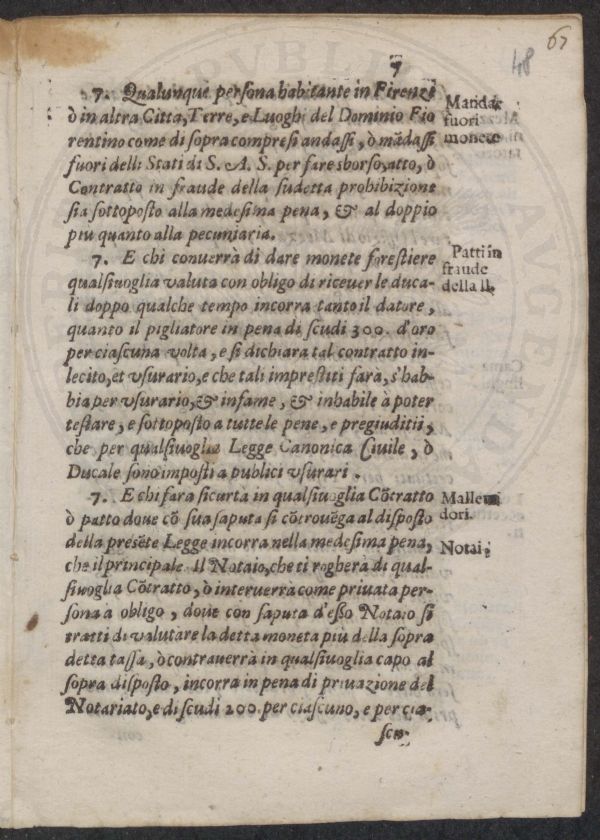 67
48
7
7. Qualunque persona habitante in Firenze
ò in altra Citta, Terre, e Luoghi del Dominio Fio
rentino come di sopra compresi andassi, ò mādassi
fuori delli Stati di S. A. S. per fare sborso, atto, ò
Contratto in fraude della sudetta prohibizione
sia sottoposto alla medesima pena, & al doppio
piu quanto alla pecuniaria.
Mandar
fuori
monete
7. E chi conuerrà di dare monete forestiere
qualsiuoglia valuta con obligo di riceuer le duca-
li doppo qualche tempo incorra tanto il datore,
quanto il pigliatore in pena di scudi 300. d'oro
per ciascuna volta, e si dichiara tal contratto in-
lecito, et vsurario, e che tali imprestiti farà, s'hab-
bia per vsurario, & infame, & inhabile à poter
testare, e sottoposto a tutte le pene, e pregiuditii,
che per qualsiuoglia Legge Canonica Ciuile, ò
Ducale sono imposti a publici vsurari.
Patti in
fraude
della ll.
7. E chi fara sicurtà in qualsiuoglia Cōtratto
ò patto doue cō sua saputa si cōtrouēga al disposto
della presēte Legge incorra nella medesima pena,
che il principale. Il Notaio, che ti rogherà di qual-
siuoglia Cōtratto, ò interuerra come priuata per-
sona a obligo, doue con saputa d'esso Notaio si
tratti di valutare la detta moneta più della sopra
detta tassa, ò contrauerrà in qualsiuoglia capo al
sopra disposto, incorra in pena di priuazione del
Notariato, e di scudi 200. per ciascuno, e per cia-
scu-
Malleua
dori.
Notai.